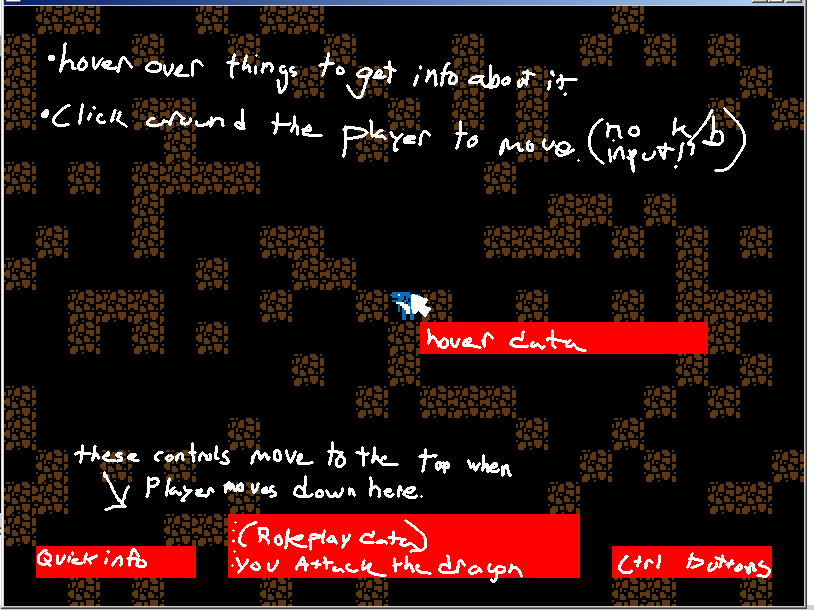 •hover over things to get info about it.
•Click around the player to move. (no k/b input!!)
hover data
these controls move to the top when
player moves down here.
Quick info
:(Roleplay data)
:you Attack the dragon
Ctrl buttons